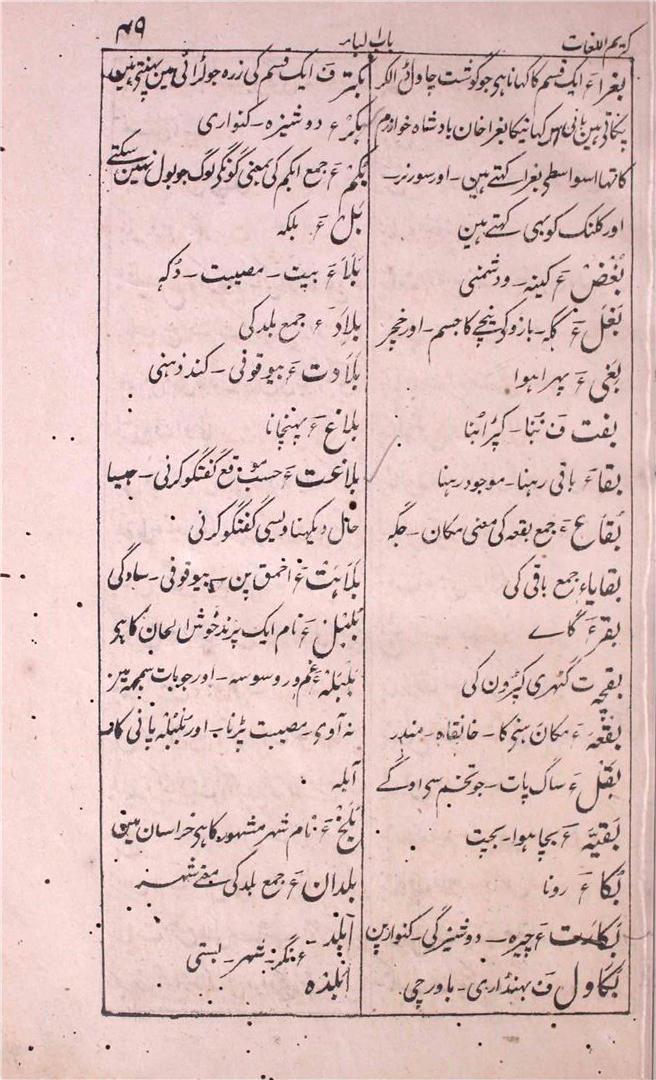 کریم اللغات
باب البا
۴۹
بغرا ءَ ایک قسم کا کہانا ہی جو گوشت چاول ڈالکر
پکاتی ہین بانی اس کہانیکا بغرا خان بادشاہ خوارزم
کا تہا اسواسطی بغرا کہتے ہین۔ اور سور نر۔
اور کلنک کو بہی کہتے ہین
بُغض ءَ کینہ۔ و دشمنی
بغل ءَ بازو کی نیچے کا جسم۔ اور خچر
بغی ءَ پہرا ہوا
بفت فَ بُنا۔ کپڑا بُنا
بقاءَ باقی رہنا۔ موجود رہنا
بُقاع ءَ جمع بقعہ کی معنی مکان۔ جگہ
بقایا ءَ جمع باقی کی
بقر ءَ گاے
بقچہ ت گٹہری کپڑون کی
بقعہ ءَ مکان رہنے کا۔ خانقاہ۔ مندر
بقل ءَ ساگ پات۔ جو تخم سی اوگے
بقیّہ ءَ بچا ہوا۔ بچت
بُکا ءَ رونا
بکارت ءَ چیرہ۔ دوشیزگی۔ کنوارپن
بکاول فَ بہنڈاری۔ باورچی
بکتر فَ ایک قسم کی زرہ جو لڑائی مین پہنتے ہین
بکر ءَ دوشیزہ۔ کنواری
بُکم ءَ جمع ابکم کی بمعنی گونگی لوگ جو بول نہین سکتے
بل ءَ بلکہ
بلا ءَ بیت۔ مصیبت۔ دُکہ
بلاد ءَ جمع بلد کی
بلادت ءَ بیوقوفی۔ کند ذہنی
بلاغ ءَ پہنچانا
بلاغت ءَ حسب موقع گفتگو کرنی۔ جیسا
حال دیکہنا ویسی گفتگو کرنی
بلاہت ءَ احمق پن۔ بیوقوفی۔ سادگی
بُلبُل ءَ نام ایک پرند خوش الحان کا ہی
بلبلہ ءَ غم و وسوسہ۔ اور جو بات سمجہہ مین
نہ آوی۔ مصیبت پڑنا۔ اور بُلبُلہ پانی کا
آبلہ
بلخ ءَ نام شہر مشہور کا ہی خراسان مین
بلدان ءَ جمع بلد کی معنے شہر
بلد
ءَ نگر۔ شہر۔ بستی
بلدہ